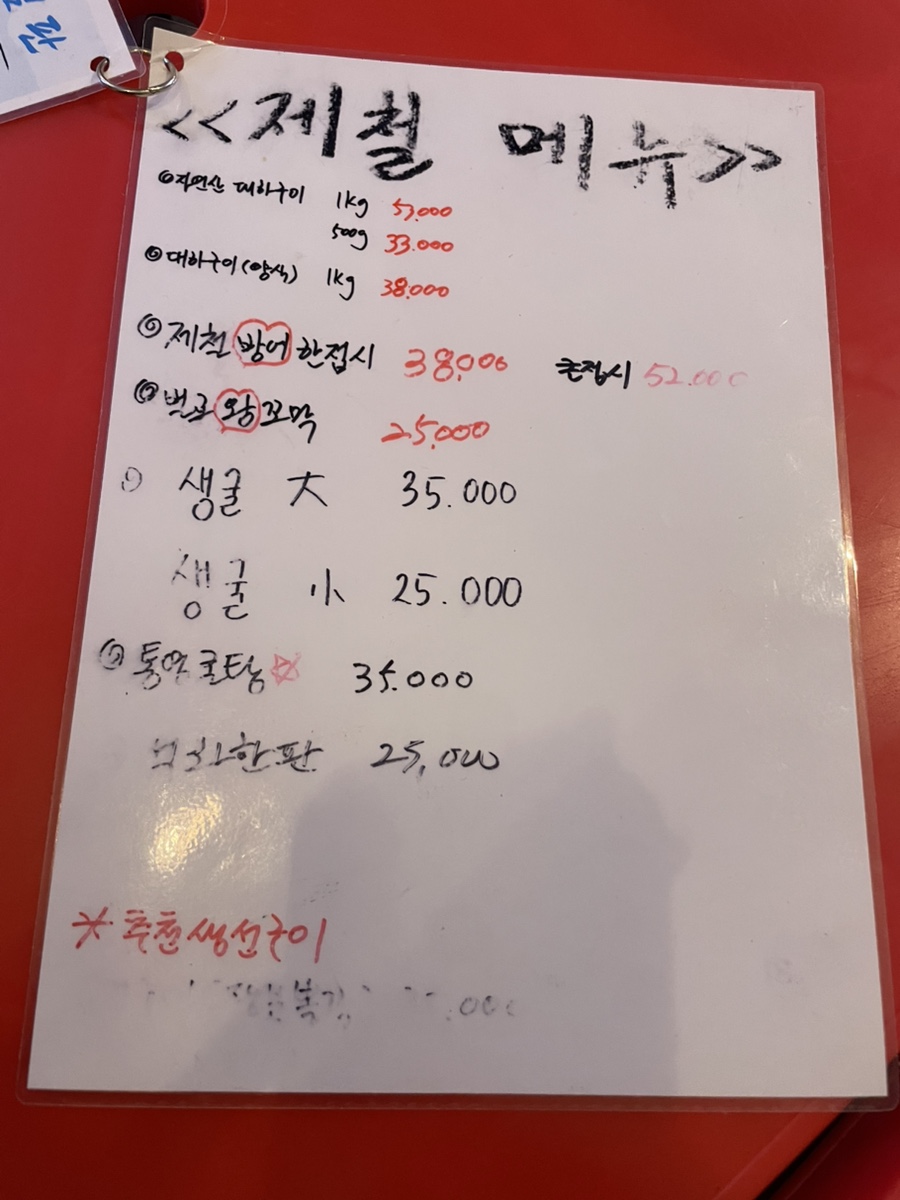 <<제철 메뉴>>
자연산 대하구이 1kg 57.000
500g 33.000
대하구이(양식) 1kg 38.000
제철 방어 한접시 38.000 큰접시 52.000
벌교 왕꼬막 25.000
생굴 大 35.000
생굴 小 25.000
통영굴탕☆ 35.000
한판 25,000
※추천생선구이